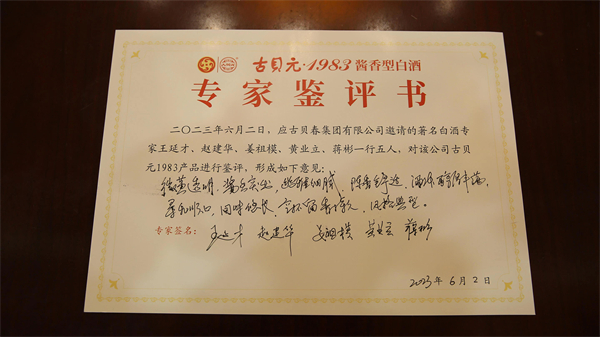 古贝元·1983 酱香型白酒
专家鉴评书
二〇二三年六月二日，应古贝春集团有限公司邀请的著名白酒专
家王延才、赵建华、姜祖模、黄业立、蒋彬一行五人，对该公司古贝
元1983产品进行鉴评，形成如下意见：
微黄透明，酱香突出，幽雅细腻，陈香舒适，酒体醇厚丰满，
柔和顺口，回味悠长，空杯留香持久，风格典型。
专家签名： 王延才 赵建华 姜祖模 黄业立 蒋彬
2023年6月2日